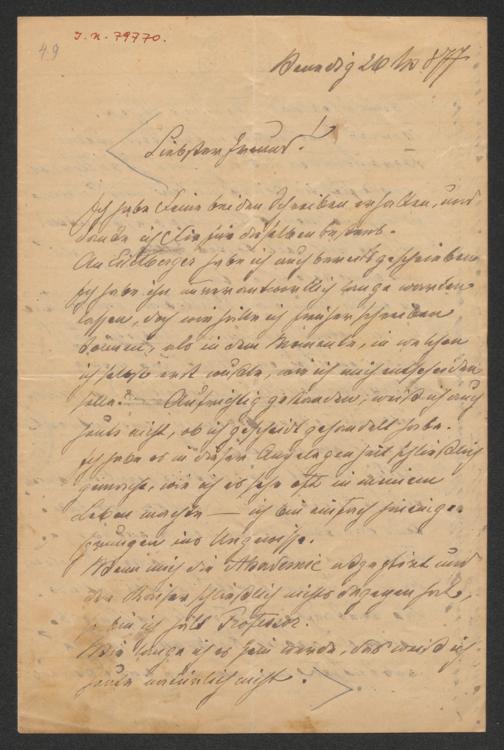 I. N. 79770.
49
Venedig 26/10 877
Liebster Freund!
Ich habe Deine beiden Schreiben erhalten, und
danke ich Dir für dieselben bestens.
An Eitelberger habe ich auch bereits geschrieben
Ich habe ihn unverantwortlich lange warten
lassen, doch wie hätte ich früher schreiben
können, als in dem Momente, in welchem
ich selbst erst wußte, wie ich mich entscheiden
solle. Aufrichtig gestanden, weiß ich auch
heute nicht, ob ich gescheidt gehandelt habe.
Ich habe es in dieser Angelegenheit schließlich
gemacht, wie ich es sehr oft in meinem
Leben machte — ich bin einfach hineinge-
sprungen ins Ungewisse.
Wenn mich die Akademie acceptirt und
der Kaiser schließlich nichts dagegen hat,
bin ich halt Professor
Wie lange ich es sein werde, das weiß ich
heute natürlich nicht.